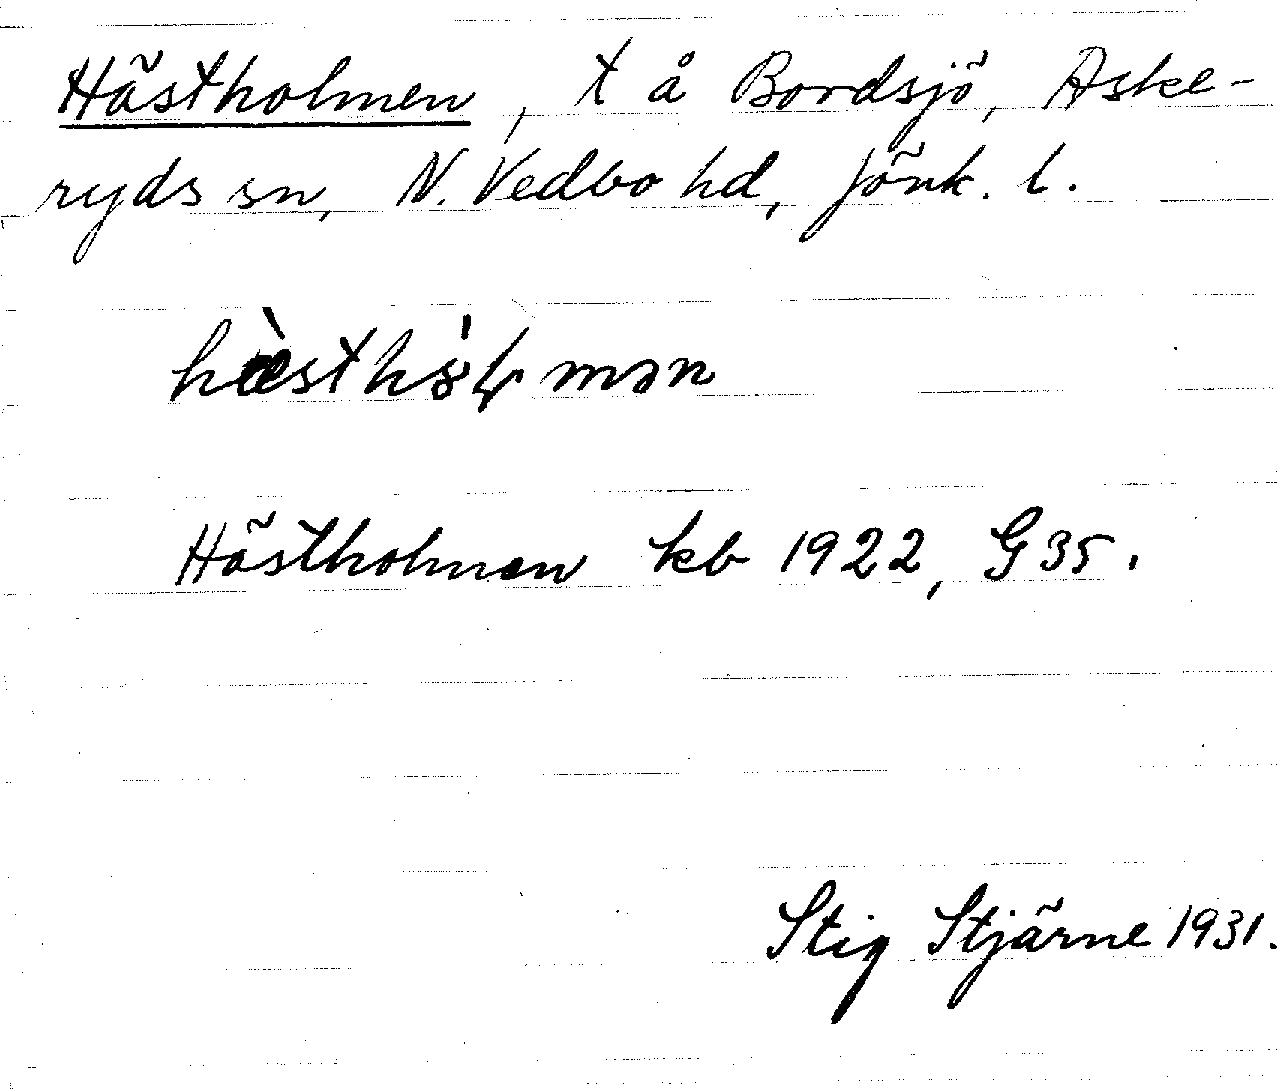 Hästholmen, t å Bordsjö, Aske-
ryds sn, N. Vedbo hd, Jönk. l.
Hästholmen kb 1922, G 35.
Stig Stjärne 1931.